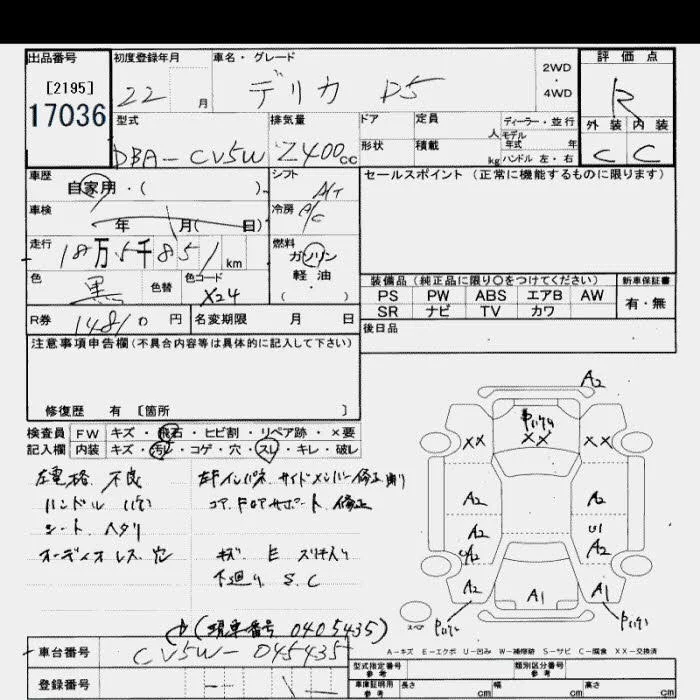 出品番号
[2195]
17036
初度登録年月
22 月
車名・グレード
デリカ D5
2WD
・
4WD
評価点
R
外装 内装
C C
型式
DBA-CV5W
排気量
2400cc
ドア
定員
人
ディーラー・並行
モデル
年式 年
形状
積載
kg
ハンドル 左・右
車歴
自家用・( )
シフト
A/T
セールスポイント(正常に機能するものに限ります)
車検
年 月( 日)
冷房
A/C
走行
18万5千851km
燃料
ガソリン
軽油
( )
色
黒
色替
色コード
X24
装備品(純正品に限り○をつけてください)
PS PW ABS エアB AW
SR ナビ TV カワ
新車保証書
有・無
R券
14810円
名変期限 月 日
後日品
注意事項申告欄(不具合内容等は具体的に記入して下さい)
修復歴 有 [箇所 ]
検査員 FW キズ・飛石・ヒビ割・リペア跡・×要
記入欄 内装 キズ・汚レ・コゲ・穴・スレ・キレ・破レ
左電格 不良
ハンドル
シート ヘタリ
オーディオレス 穴
左Fインパネ サイドメンバー修正
コアサポート 修正
キズ E スリキズ入り
下廻り S.C
A2
XX XX XX
A2 A2
A2 U1
A2
A2 A1 A1
スペア
(現車番号 0405435)
車台番号
CV5W-045435
A-キズ E-エクボ U-凹み W-補修跡 S-サビ C-腐食 XX-交換済
型式指定番号
参考
類別区分番号
参考
登録番号
車庫証明用
参考
長さ cm 幅 cm 高さ cm